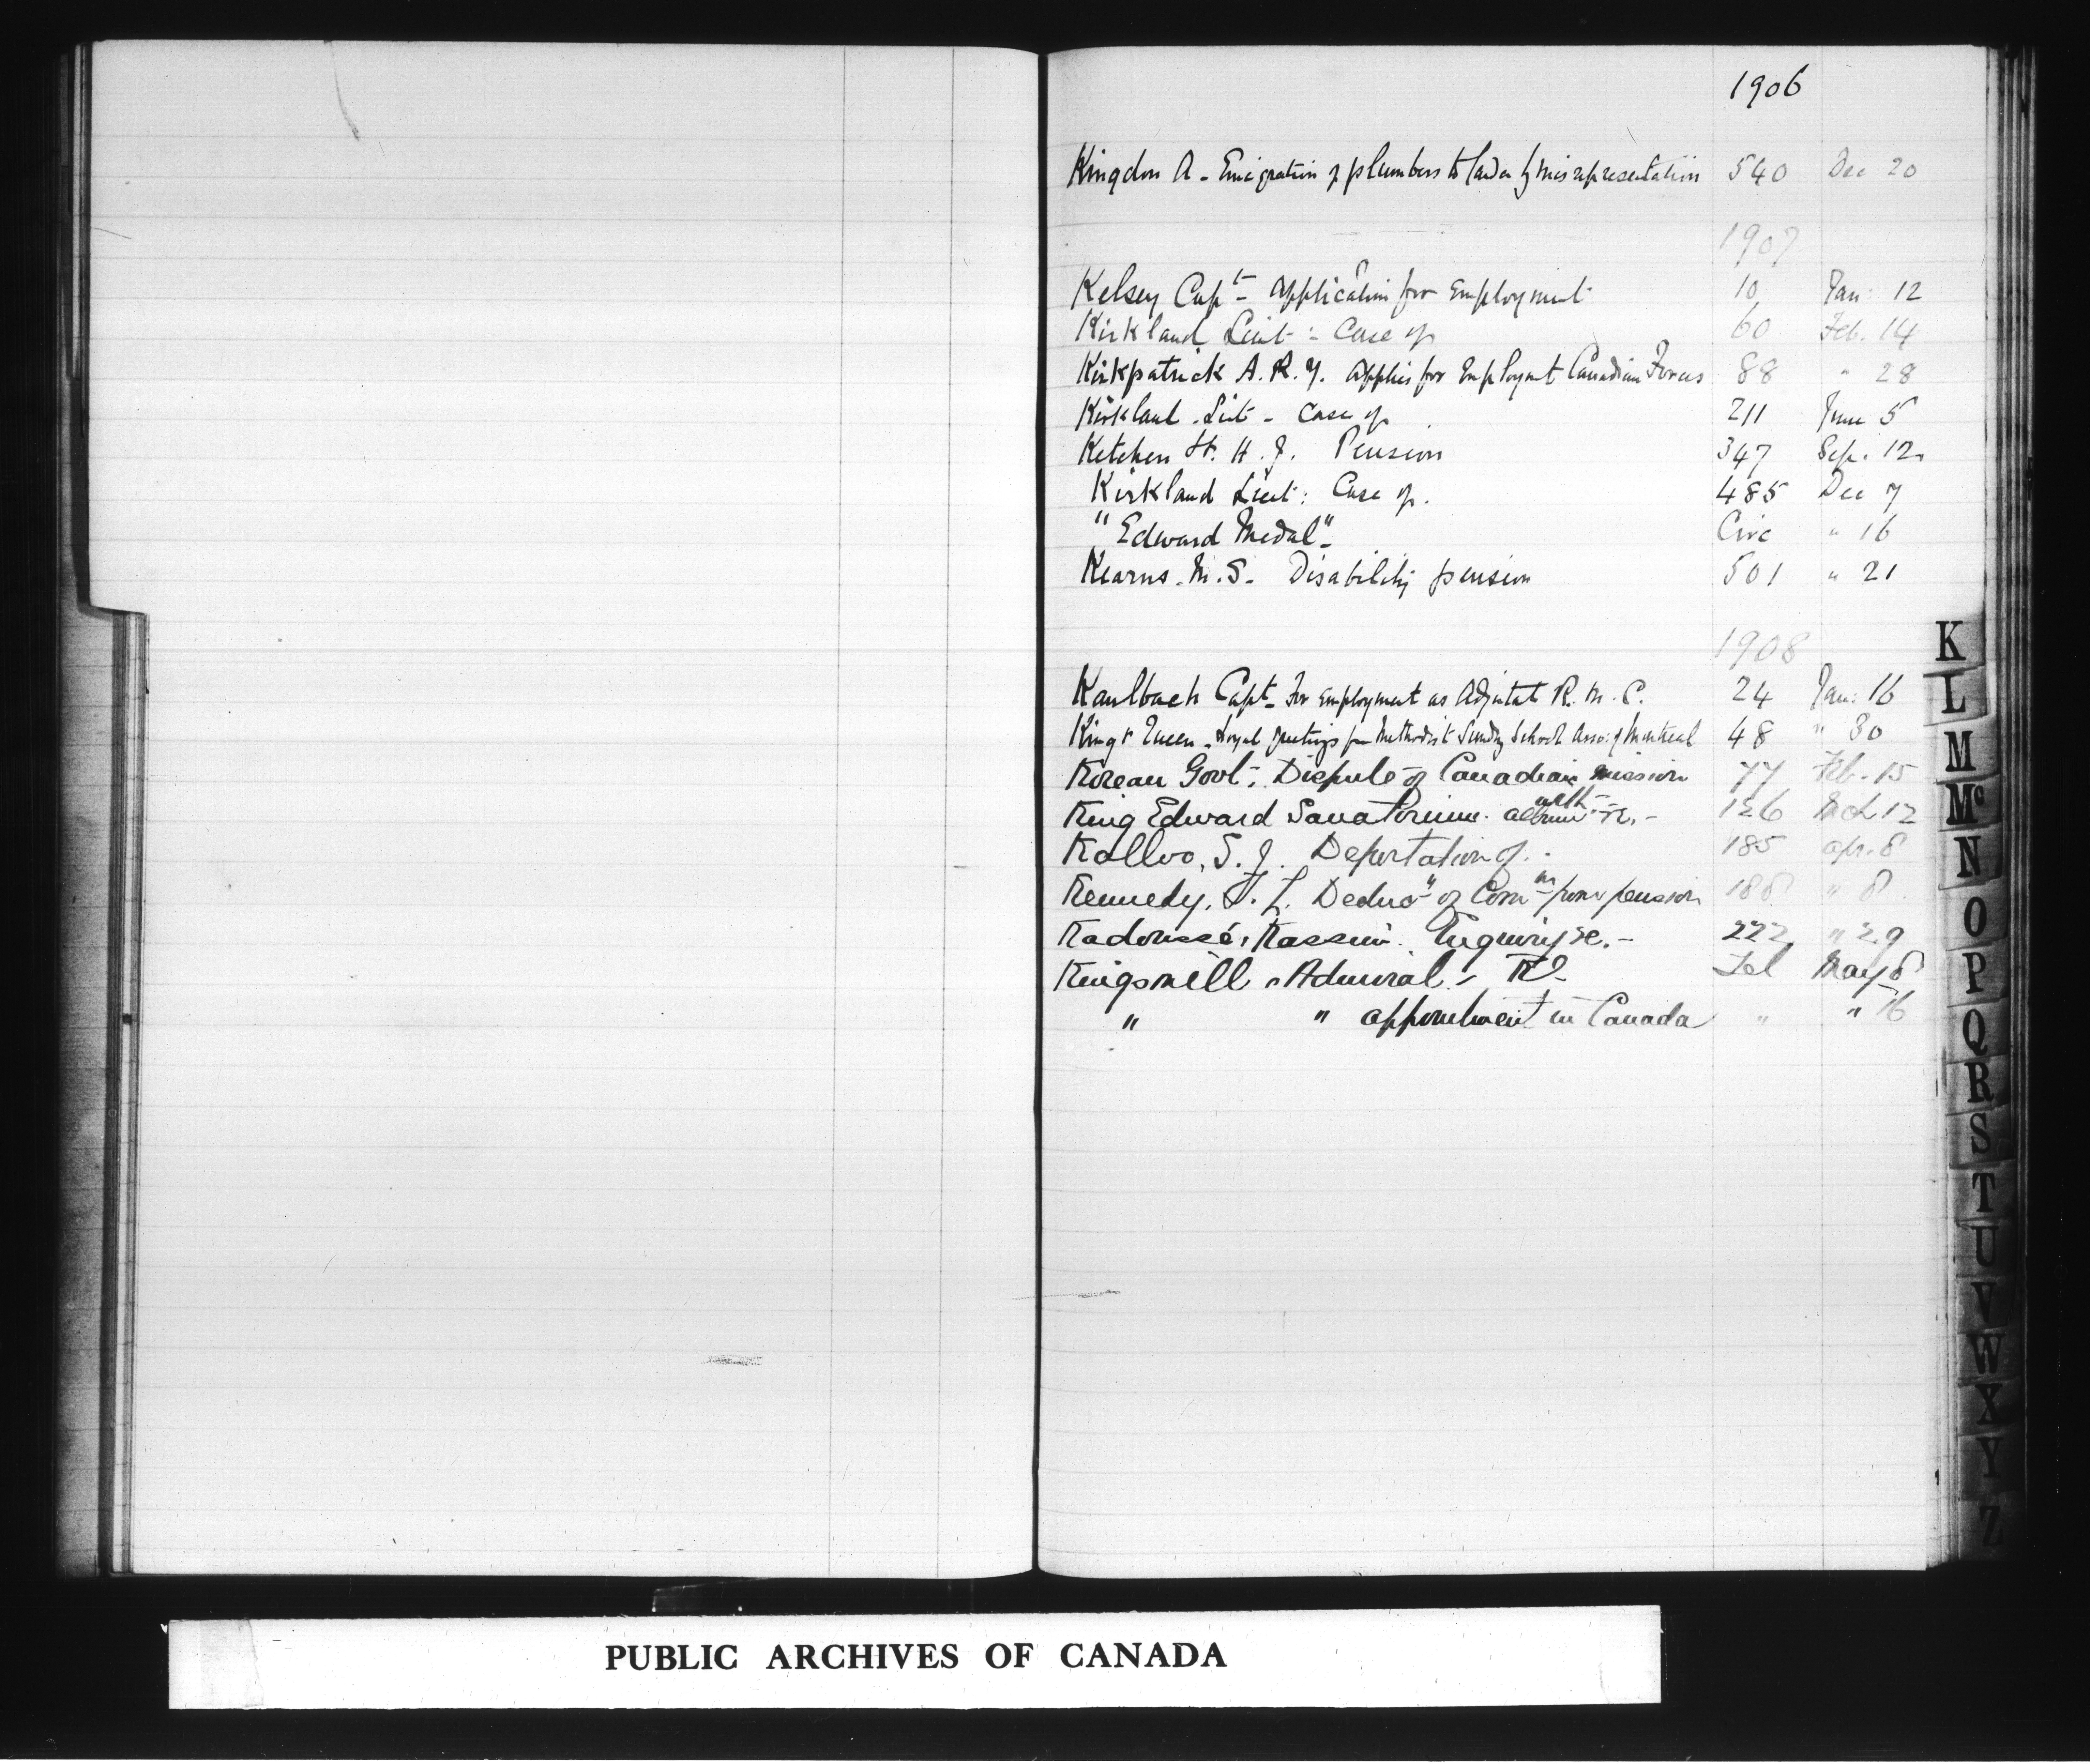 1906
Kingdon A - Emigration of plumbers to Canada by misrepresentation 540 Dec 20
1907
Kelsey Capt - Application for Employment 10 Jan: 12
Kirkland Lieut: Case of 60 Feb. 14
Kirkpatrick A. R. Y. applies for Employmt Canadian Forces 88 " 28
Kirkland Lieut - Case of 211 June 5
Ketchen H. J. Pension 347 Sep. 12
Kirkland Lieut: Case of. 485 Dec 7
"Edward Medal" - Circ " 16
Kearns. M. S. Disability pension 501 " 21
1908
Kaulbach Capt - For Employment as Adjutat R. M. C. 24 Jan: 16
King & Queen - Loyal greetings from Methodist Sunday School Asso: of Montreal 48 " 30
Korean Govt: Dispute of Canadian mission 77 Feb. 15
King Edward Sanatorium. album re. - 126 Mch 12
Kallvo, S. J. Deportation of. - 185 apr. 8
Kennedy, T. L. Deduc" of Comm from pension 188 " 8
Kadoussé, Kassim. Enquiry re. - 222 " 29
Kingsmill, Admiral, Tel May 8
" " appointment in Canada " " 16
K
L
M
Mc
N
O
P
Q
R
S
T
U
V
W
X
Y
Z
PUBLIC ARCHIVES OF CANADA